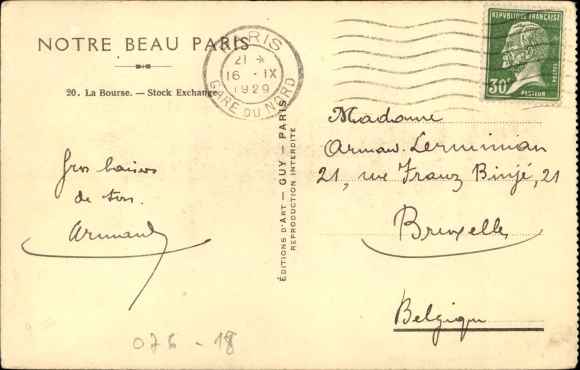 NOTRE BEAU PARIS
20. La Bourse. — Stock Exchange
Gros baisers
de ton
Armand
076 - 18
PARIS
21 *
16 - IX
1929
GARE DU NORD
ÉDITIONS D'ART — GUY — PARIS
REPRODUCTION INTERDITE
REPUBLIQUE FRANÇAISE
30c
POSTES
PASTEUR
Madame
Arman
21, rue Franz 21
Bruxelles
Belgique